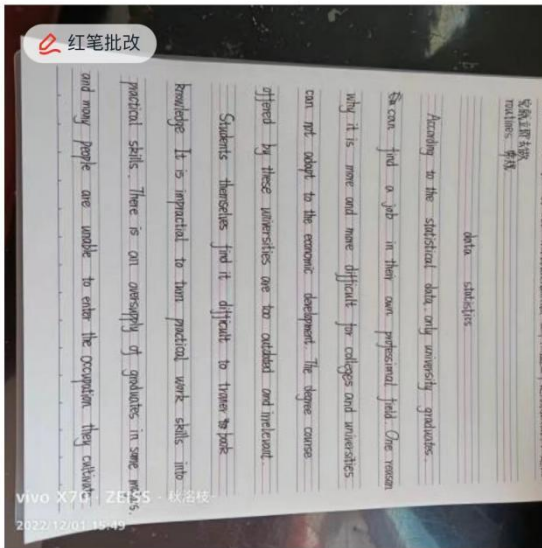 红笔批改
routines.
data statistics
According to the statistical data, only university graduates.
can find a job in their own professional field. One reason
why it is more and more difficult for colleges and universities
can not adapt to the economic development. The degree course
offered by these universities are too outdated and irrelevant.
Students themselves find it difficult to book
knowledge. It is impractial to turn practical work skills into
practical skills. There is an oversupply of graduates in same
and many people are unable to enter the occupation they cultivate
vivo X70 · ZEISS · 秋洛枝-
2022/12/01 15:49